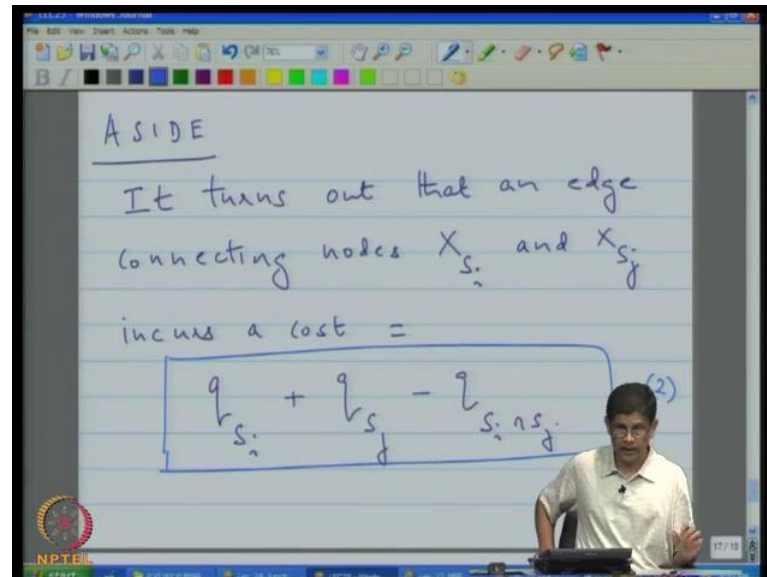 File Edit View Insert Actions Tools Help
76%
B I
ASIDE
It turns out that an edge
connecting nodes X_{S_i} and X_{S_j}
incurs a cost =
q_{S_i} + q_{S_j} - q_{S_i ∩ S_j} (2)
17/18
NPTEL